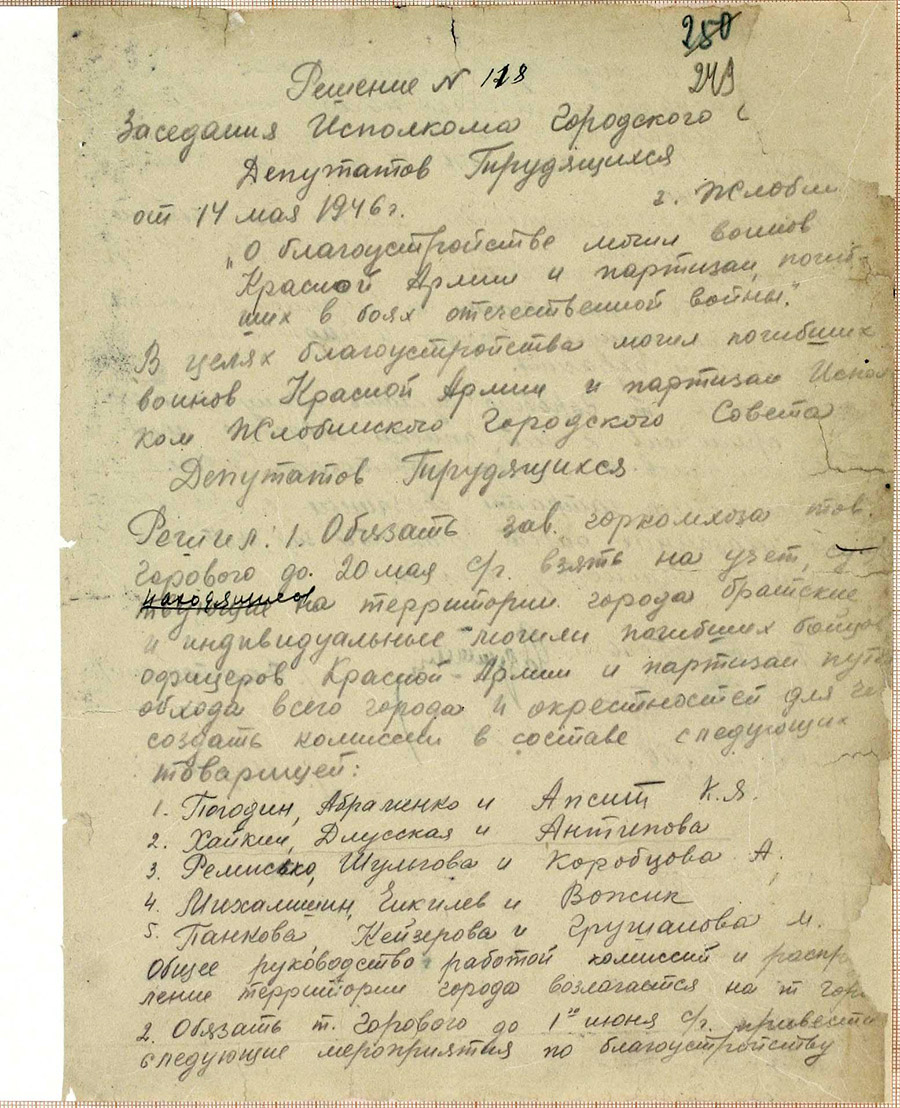 250
249
Решение N 118
Заседания Исполкома Городского С
Депутатов Трудящихся
от 14 мая 1946 г. г. Жлобин
"О благоустройстве могил воинов
Красной Армии и партизан, погиб-
ших в боях отечественной войны".
В целях благоустройства могил погибших
воинов Красной Армии и партизан Испол
ком Жлобинского Городского Совета
Депутатов Трудящихся
Решил: 1. Обязать зав. горкомхоза тов.
Горового до 20 мая с/г. взять на учет,
находящиеся на территории города братские
и индивидуальные могили погибших бойцов
офицеров Красной Армии и партизан путе
обхода всего города и окрестностей для че
создать комиссии в составе следующих
товарищей:
1. Погодин, Абраменко и Апсит К.Я.
2. Хайкин, Длусская и Антипова
3. Ремисько, Шульгова и Коробцова А.
4. Михалинин, Еикилев и Вожик
5. Панкова, Кейзерова и Грушанова М.
Общее руководство работой комиссий и распр
ление территории города возлагается на т Горо
2. Обязать т. Горового до 1го июня с/г. привести
следующие мероприятия по благоустройству